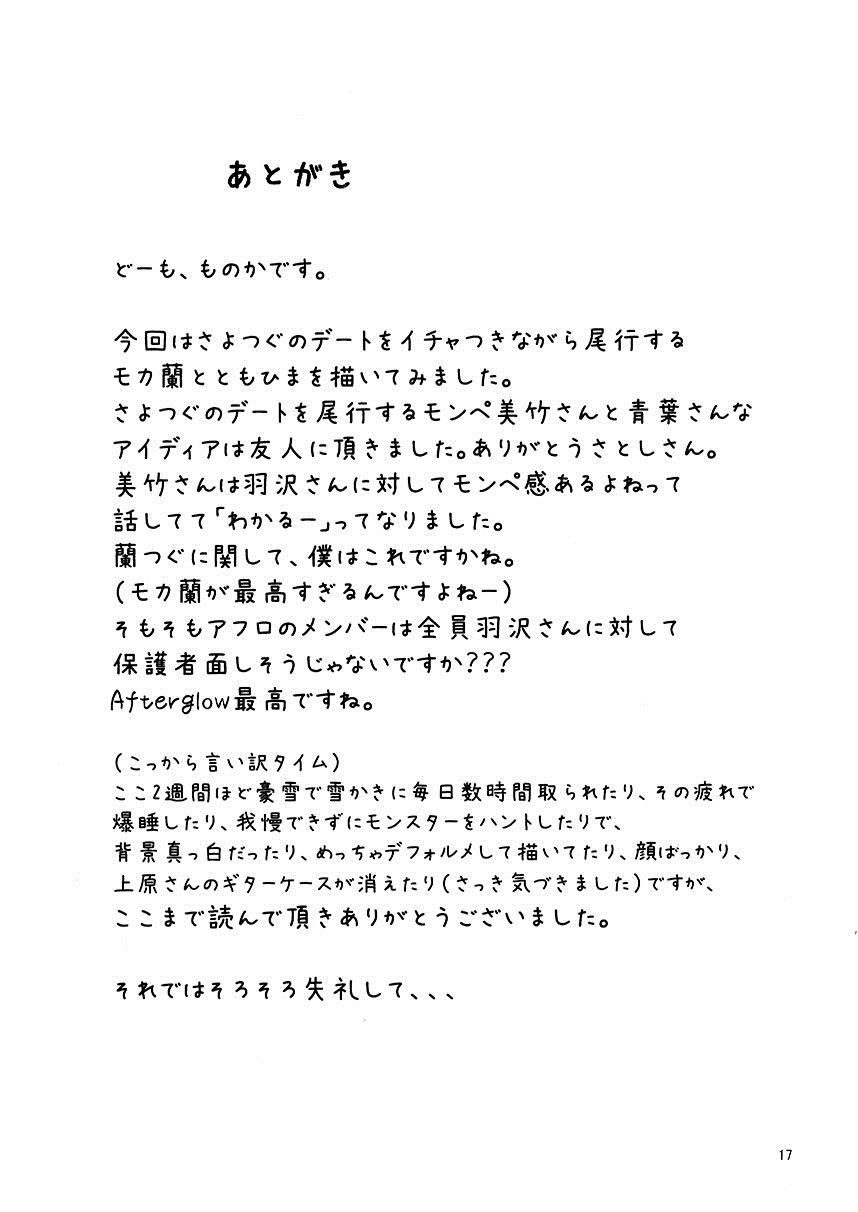 あとがき
どーも、ものかです。
今回はさよつぐのデートをイチャつきながら尾行する
モカ蘭とともひまを描いてみました。
さよつぐのデートを尾行するモンペ美竹さんと青葉さんな
アイディアは友人に頂きました。ありがとうさとしさん。
美竹さんは羽沢さんに対してモンペ感あるよねって
話してて「わかるー」ってなりました。
蘭つぐに関して、僕はこれですかね。
(モカ蘭が最高すぎるんですよねー)
そもそもアフロのメンバーは全員羽沢さんに対して
保護者面しそうじゃないですか???
Afterglow最高ですね。
(こっから言い訳タイム)
ここ2週間ほど豪雪で雪かきに毎日数時間取られたり、その疲れで
爆睡したり、我慢できずにモンスターをハントしたりで、
背景真っ白だったり、めっちゃデフォルメして描いてたり、顔ばっかり、
上原さんのギターケースが消えたり(さっき気づきました)ですが、
ここまで読んで頂きありがとうございました。
それではそろそろ失礼して、、、
17